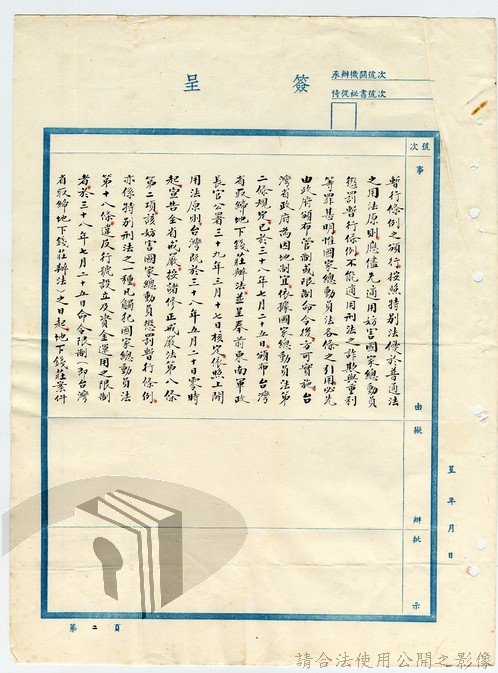 簽呈
承辦機關號次
侍從祕書號次
號次
事由
擬辦
批示
呈 年 月 日
暫行條例之頒行，按照特別法優於普通法
之用法原則應儘先適用妨害國家總動員
懲罰暫行條例，不能適用刑法之詐欺與重利
等罪甚明，惟國家總動員法各條之引用必先
由政府頒布管制或限制命令後，方可實施，台
灣省政府為因地制宜，依據國家總動員法第
二條規定，已於三十八年七月二十五日頒布台灣
省取締地下錢莊辦法，並呈奉前東南軍政
長官公署三十九年三月十七日核定，依照上開
用法原則台灣既於三十八年五月二十日零時
起宣告全省戒嚴，按諸修正戒嚴法第八條
第二項該妨害國家總動員懲罰暫行條例，
亦係特別刑法之一種，凡觸犯國家總動員法
第十八條違反行號設立及資金運用之限制
者，於三十八年七月二十五日命令限制（即台灣
省取締地下錢莊辦法）之日起地下錢莊案件
第二頁
請合法使用公開之影像